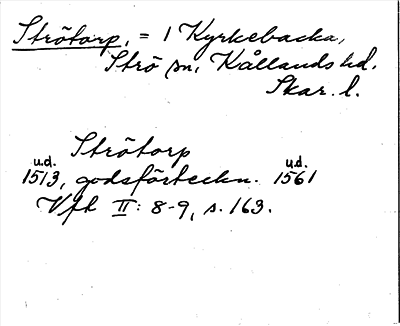 Strötorp, = 1 Kyrkebacka,
Strö sn, Kållands hd.
Skar. l.
Strötorp
u.d. u.d.
1513, godsförteckn. 1561
Vft II: 8-9, s. 163.